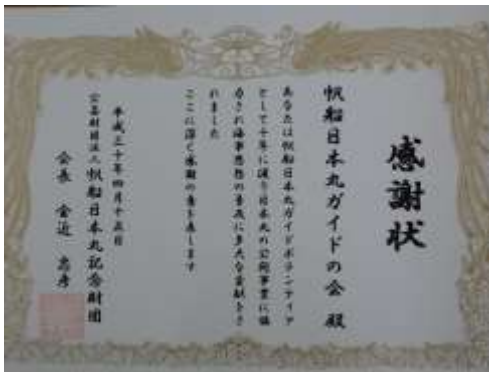 感謝状
帆船日本丸ガイドの会 殿
あなたは帆船日本丸ガイドボランティア
として十年に渡り日本丸の公開事業に協
力され海事思想の普及に多大な貢献をさ
れました
ここに深く感謝の意を表します
平成三十年四月十五日
公益財団法人 帆船日本丸記念財団
会長 金近 忠彦